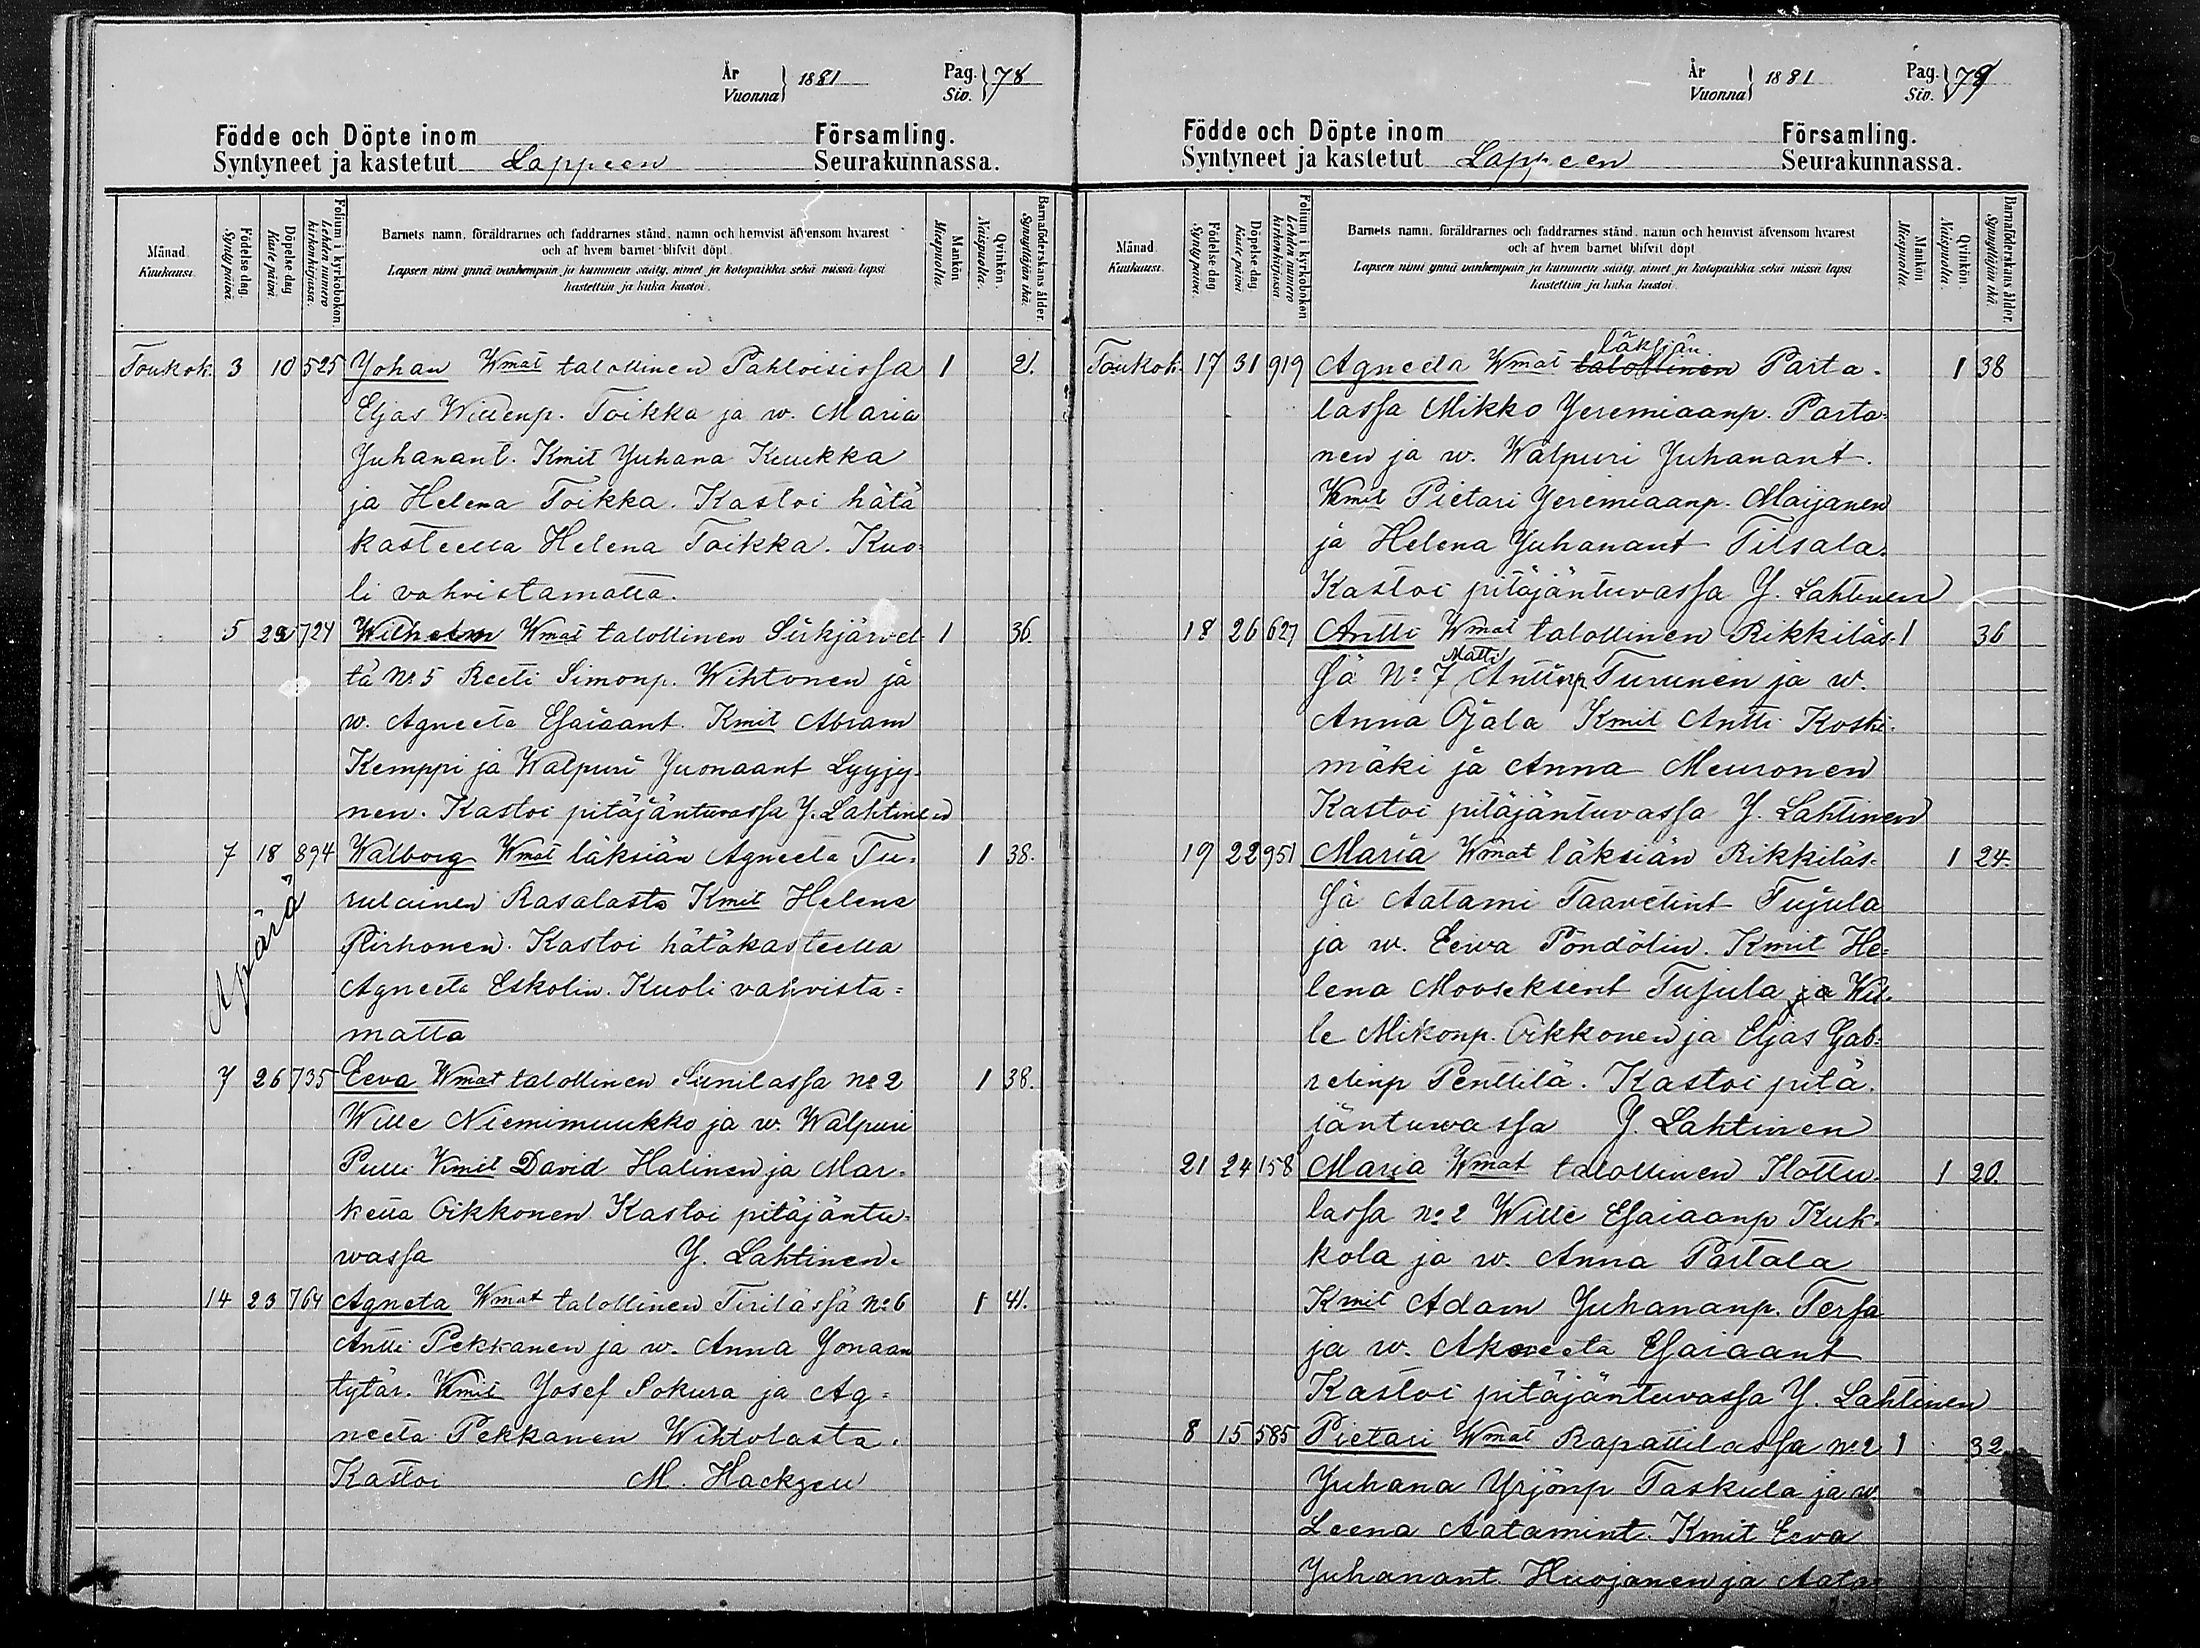 År Vuonna } 1881 Pag. Siv. } 78
Födde och Döpte inom Församling.
Syntyneet ja kastetut Lappeen Seurakunnassa.
Månad. Kuukausi.
Födelse dag. Synty päivä.
Döpelse dag. Kaste päivä.
Folium i kyrkoboken. Lehden numero kirkonkirjassa.
Barnets namn, föräldrarnes och faddrarnes stånd, namn och hemvist äfvensom hvarest
och af hvem barnet blifvit döpt.
Lapsen nimi ynnä vanhempain ja kummein sääty, nimet ja kotopaikka sekä missä lapsi
kastettiin ja kuka kastoi.
Mankön. Miespuolia.
Qvinkön. Naispuolia.
Barnaföderskans ålder. Synnyttäjän ikä.
Toukok. 3 10 525 Johan Wmat talollinen Pahloisissa 1 21.
Eljas Willenp. Toikka ja w. Maria
Juhanant. Kmit Juhana Kuukka
ja Helena Toikka. Kastoi hätä
kasteella Helena Toikka. Kuo-
li vahvistamatta.
5 22 724 Wilhelm Wmat talollinen Sirkjärvel- 1 36.
tä No 5 Reeti Simonp. Wihtonen ja
w. Agneeta Esaiaant. Kmit Abram
Kemppi ja Walpuri Juonaant Lyyjy-
nen. Kastoi pitäjäntuvassa J. Lahtinen
7 18 894 Walborg Wmat läksiän Agneeta Tu- 1 38.
rulainen Rasalasta Kmit Helena
Pirhonen. Kastoi hätäkasteella
Agneeta Eskolin. Kuoli vahvista=
matta
Äpärä
7 26 735 Eeva Wmat talollinen Sunilassa No 2 1 38.
Wille Niemimuukko ja w. Walpuri
Pulli Kmit David Halinen ja Mar-
ketta Oikkonen Kastoi pitäjäntu-
wassa J. Lahtinen.
14 23 764 Agneta Wmat talollinen Tirilässä No 6 1 41.
Antti Pekkanen ja w. Anna Jonaan
tytär. Kmit Josef Sokura ja Ag=
neeta Pekkanen Wihtolasta.
Kastoi M. Hackzell
År Vuonna } 1881 Pag. Siv. } 79
Födde och Döpte inom Församling.
Syntyneet ja kastetut Lappeen Seurakunnassa.
Månad. Kuukausi.
Födelse dag. Synty päivä.
Döpelse dag. Kaste päivä.
Folium i kyrkoboken. Lehden numero kirkonkirjassa.
Barnets namn, föräldrarnes och faddrarnes stånd, namn och hemvist äfvensom hvarest
och af hvem barnet blifvit döpt.
Lapsen nimi ynnä vanhempain ja kummein sääty, nimet ja kotopaikka sekä missä lapsi
kastettiin ja kuka kastoi.
Mankön. Miespuolia.
Qvinkön. Naispuolia.
Barnaföderskans ålder. Synnyttäjän ikä.
läksiän
Toukok. 17 31 919 Agneeta Wmat talollinen Parta- 1 38
lassa Mikko Jeremiaanp. Parta-
nen ja w. Walpuri Juhanant.
Kmit Pietari Jeremiaanp. Maijanen
ja Helena Juhanant Tilsala.
Kastoi pitäjäntuvassa J. Lahtinen
18 26 627 Antti Wmat talollinen Rikkiläs- 1 36
Matti
sä No 7 Anttinp Turunen ja w.
Anna Ojala Kmit Antti Koski-
mäki ja Anna Meuronen
Kastoi pitäjäntuvassa J. Lahtinen
19 22 951 Maria Wmat läksiän Rikkiläs- 1 24.
sä Aatami Taavetint Tujula
ja w. Eeva Pöndölin. Kmit He-
lena Mooseksent Tujula ja Wil-
le Mikonp. Oikkonen ja Eljas Gab-
relinp Penttilä. Kastoi pitä-
jäntuvassa J. Lahtinen
21 24 158 Maria Wmat talollinen Hottu- 1 20.
lassa No 2 Wille Esaiaanp Kuk-
kola ja w. Anna Partala
Kmit Adam Juhananp. Tersa
ja w. Akneeta Esaiaant
Kastoi pitäjäntuvassa J. Lahtinen
8 15 585 Pietari Wmat Rapattilassa No 2 1 32
Juhana Yrjönp Taskula ja w.
Leena Aatamint. Kmit Eeva
Juhanant. Huojanen ja Aata-